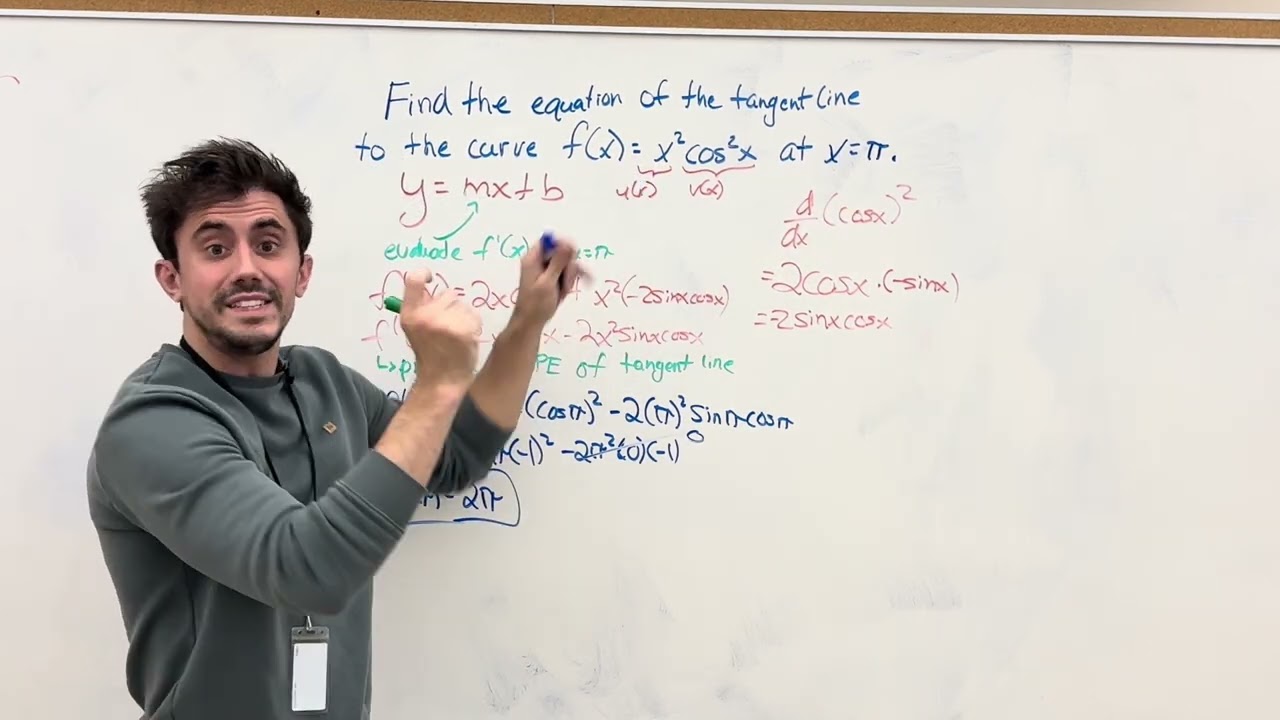 Find the equation of the tangent line
to the curve f(x) = x²cos²x at x=π.
u(x) v(x)
y = mx+b
evaluate f'(x) x=π
= 2x + x²(-2sinxcosx)
x - 2x²sinxcosx
↳ PE of tangent line
(cosπ)² - 2(π)² sinπcosπ
π(-1)² - 2π²(0)(-1) 0
= 2π
d/dx (cosx)²
= 2cosx·(-sinx)
= -2sinxcosx